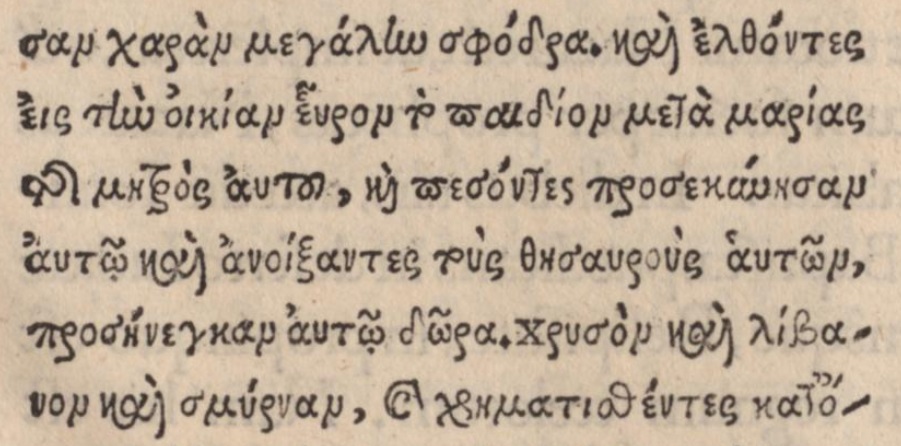 σαν χαρὰν μεγάλην σφόδρα. καὶ ἐλθόντες
ἐις τὴν ὀικίαν ἔυρον τὸ παιδίον μετὰ μαρίας
τῆς μητρὸς ἀυτοῦ, καὶ πεσόντες προσεκύνησαν
ἀυτῷ καὶ ἀνοίξαντες τοὺς θησαυροὺς ἁυτῶν,
προσήνεγκαν ἀυτῷ δῶρα. χρυσὸν καὶ λίβα-
νον καὶ σμύρναν, καὶ χρηματισθέντες κατ' ό-